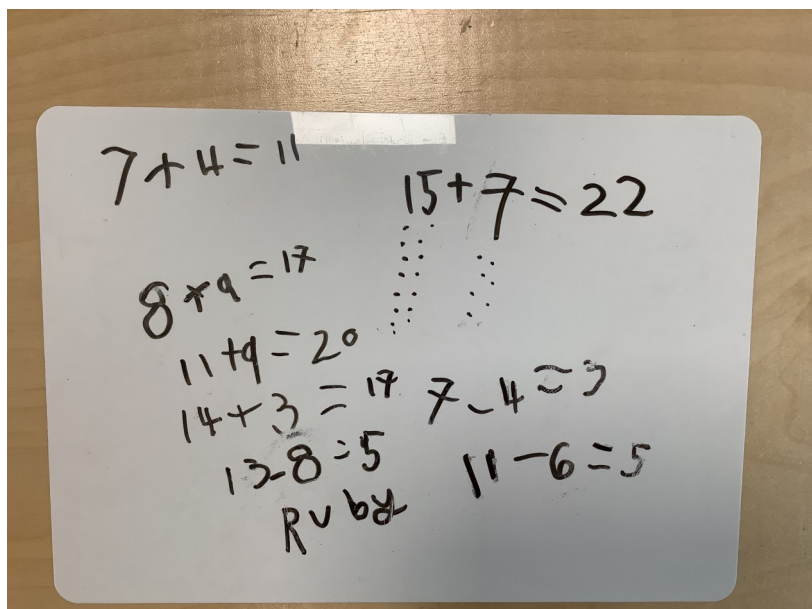 7+4=11
15+7=22
8+9=17
11+9=20
14+3=17
7-4=3
13-8=5
11-6=5
Ruby